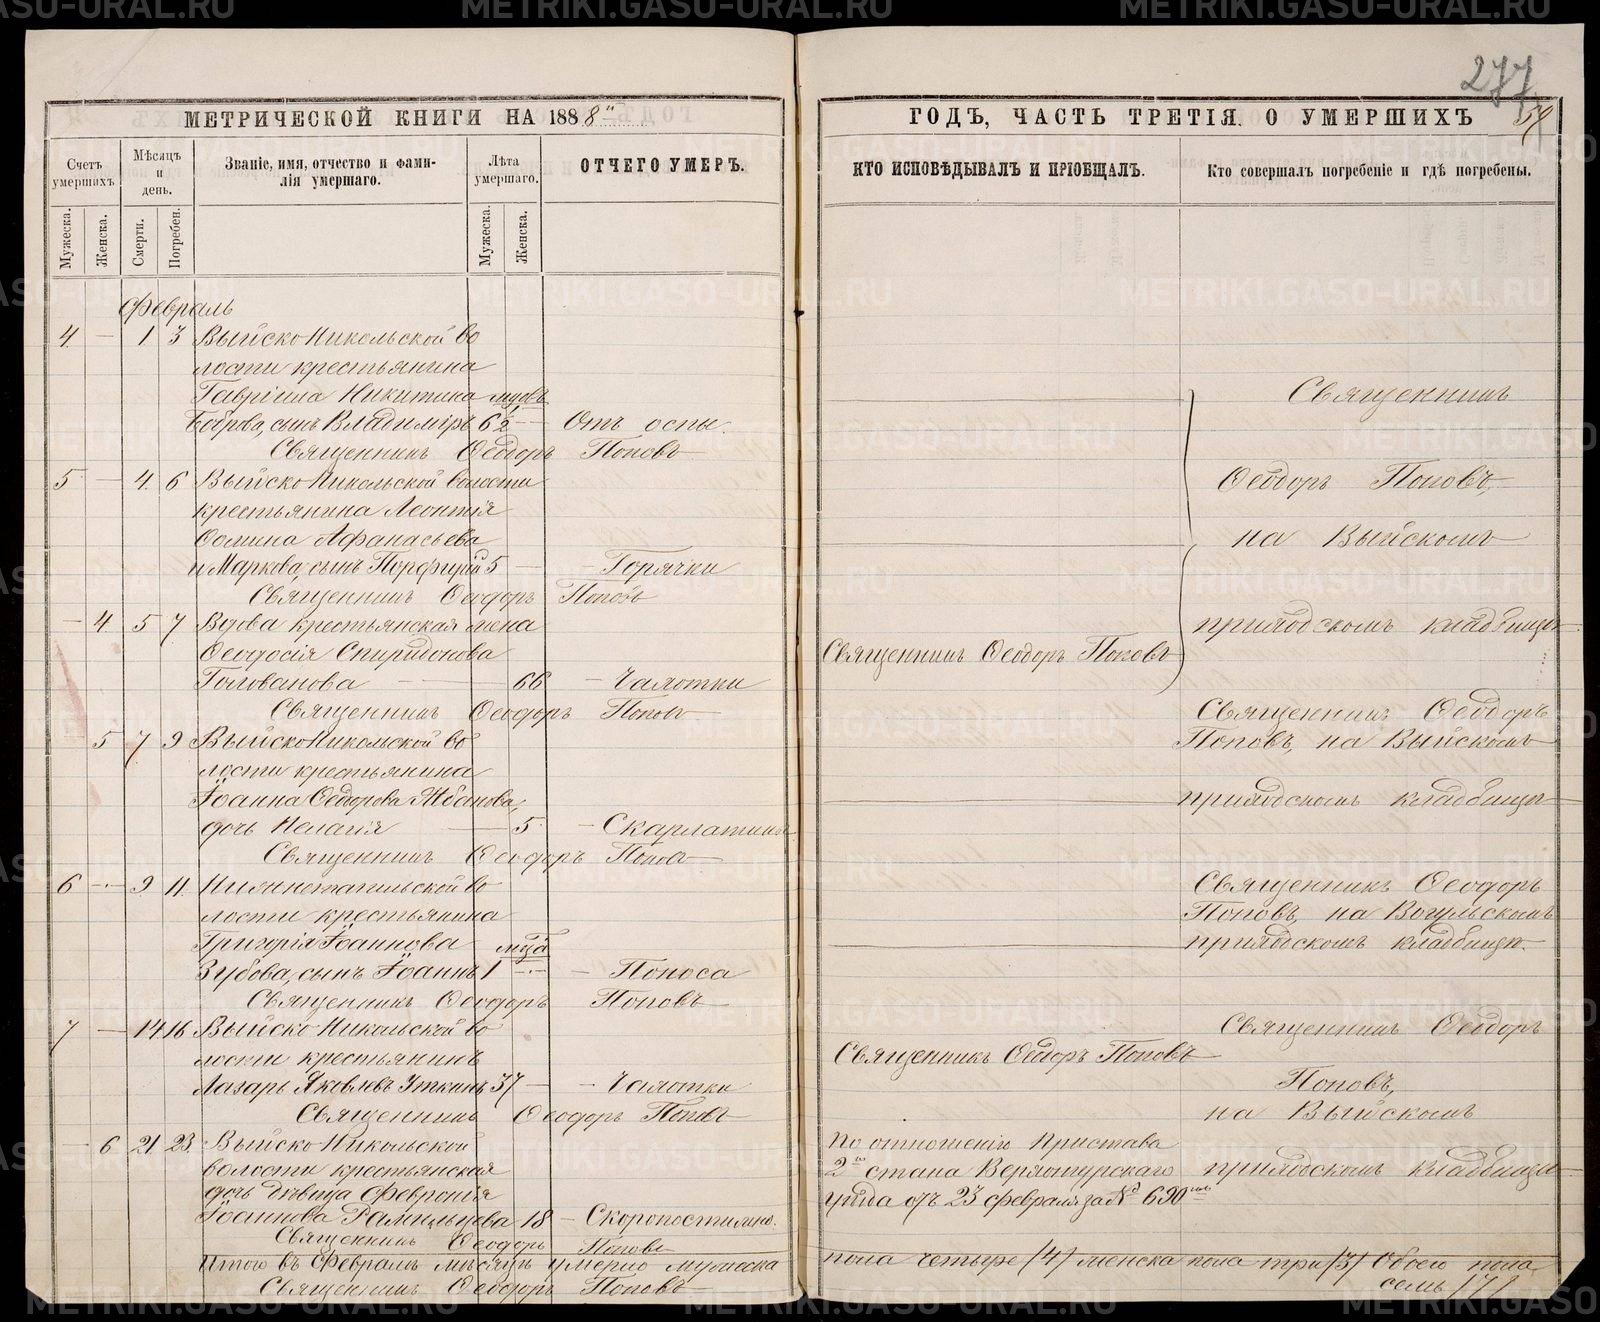 METRIKI.GASO-URAL.RU
277
МЕТРИЧЕСКОЙ КНИГИ НА 1888й
ГОДЪ, ЧАСТЬ ТРЕТІЯ. О УМЕРШИХЪ
59
Счетъ умершихъ.
Мѣсяцъ и день.
Званіе, имя, отчество и фами-
лія умершаго.
Лѣта умершаго.
ОТЧЕГО УМЕРЪ.
КТО ИСПОВѢДЫВАЛЪ И ПРІОБЩАЛЪ.
Кто совершалъ погребеніе и гдѣ погребены.
Мужеска.
Женска.
Смерти.
Погребен.
Мужеска.
Женска.
Февраль
4 — 1 3 Выйско Никольской во
лости крестьянина
Гавріила Никитина
Боброва, сынъ Владиміръ 6½ — Отъ оспы.
Священникъ Ѳеодоръ Поповъ
5 — 4 6 Выйско Никольской волости
крестьянина Леонтія
Афанасьева
и Маркова, сынъ Порфирій 5 — Горячки
Священникъ Ѳеодоръ Поповъ
— 4 5 7 Вдова крестьянская жена
Ѳеодосія Спиридонова
Голованова — 66 — Чахотки
Священникъ Ѳеодоръ Поповъ
5 7 9 Выйско Никольской во
лости крестьянина
Іоанна Ѳедорова Жбанова,
дочь Пелагія — 5 — Скарлатины
Священникъ Ѳеодоръ Поповъ
6 — 9 11 Нижнетагильской во
лости крестьянина
Григорія Іоаннова
Зубова, сынъ Іоаннъ 1 — Поноса
Священникъ Ѳеодоръ Поповъ
7 — 14 16 Выйско Никольской во
лости крестьянинъ
Лазарь Яковлевъ Уткинъ 37 — Чахотки
Священникъ Ѳеодоръ Поповъ
— 6 21 23 Выйско Никольской
волости крестьянская
дочь дѣвица Февронія
Іоаннова 18 — Скоропостижно.
Священникъ Ѳеодоръ Поповъ
Итого въ Февралѣ мѣсяцѣ умерло мужеска
Священникъ Ѳеодоръ Поповъ
Священникъ
Ѳеодоръ Поповъ,
на Выйскомъ
приходскомъ кладбищѣ.
Священникъ Ѳеодоръ Поповъ
Священникъ Ѳеодоръ
Поповъ, на Выйскомъ
приходскомъ кладбищѣ
Священникъ Ѳеодоръ
Поповъ, на Вогульскомъ
приходскомъ кладбищѣ.
Священникъ Ѳеодоръ Поповъ
Священникъ Ѳеодоръ
Поповъ,
на Выйскомъ
приходскомъ кладбищѣ
По отношенію Пристава
2го стана Верхотурскаго
уѣзда отъ 23 февраля за № 690мъ
пола четыре /4/ женска пола три /3/ Обоего пола
семь /7/